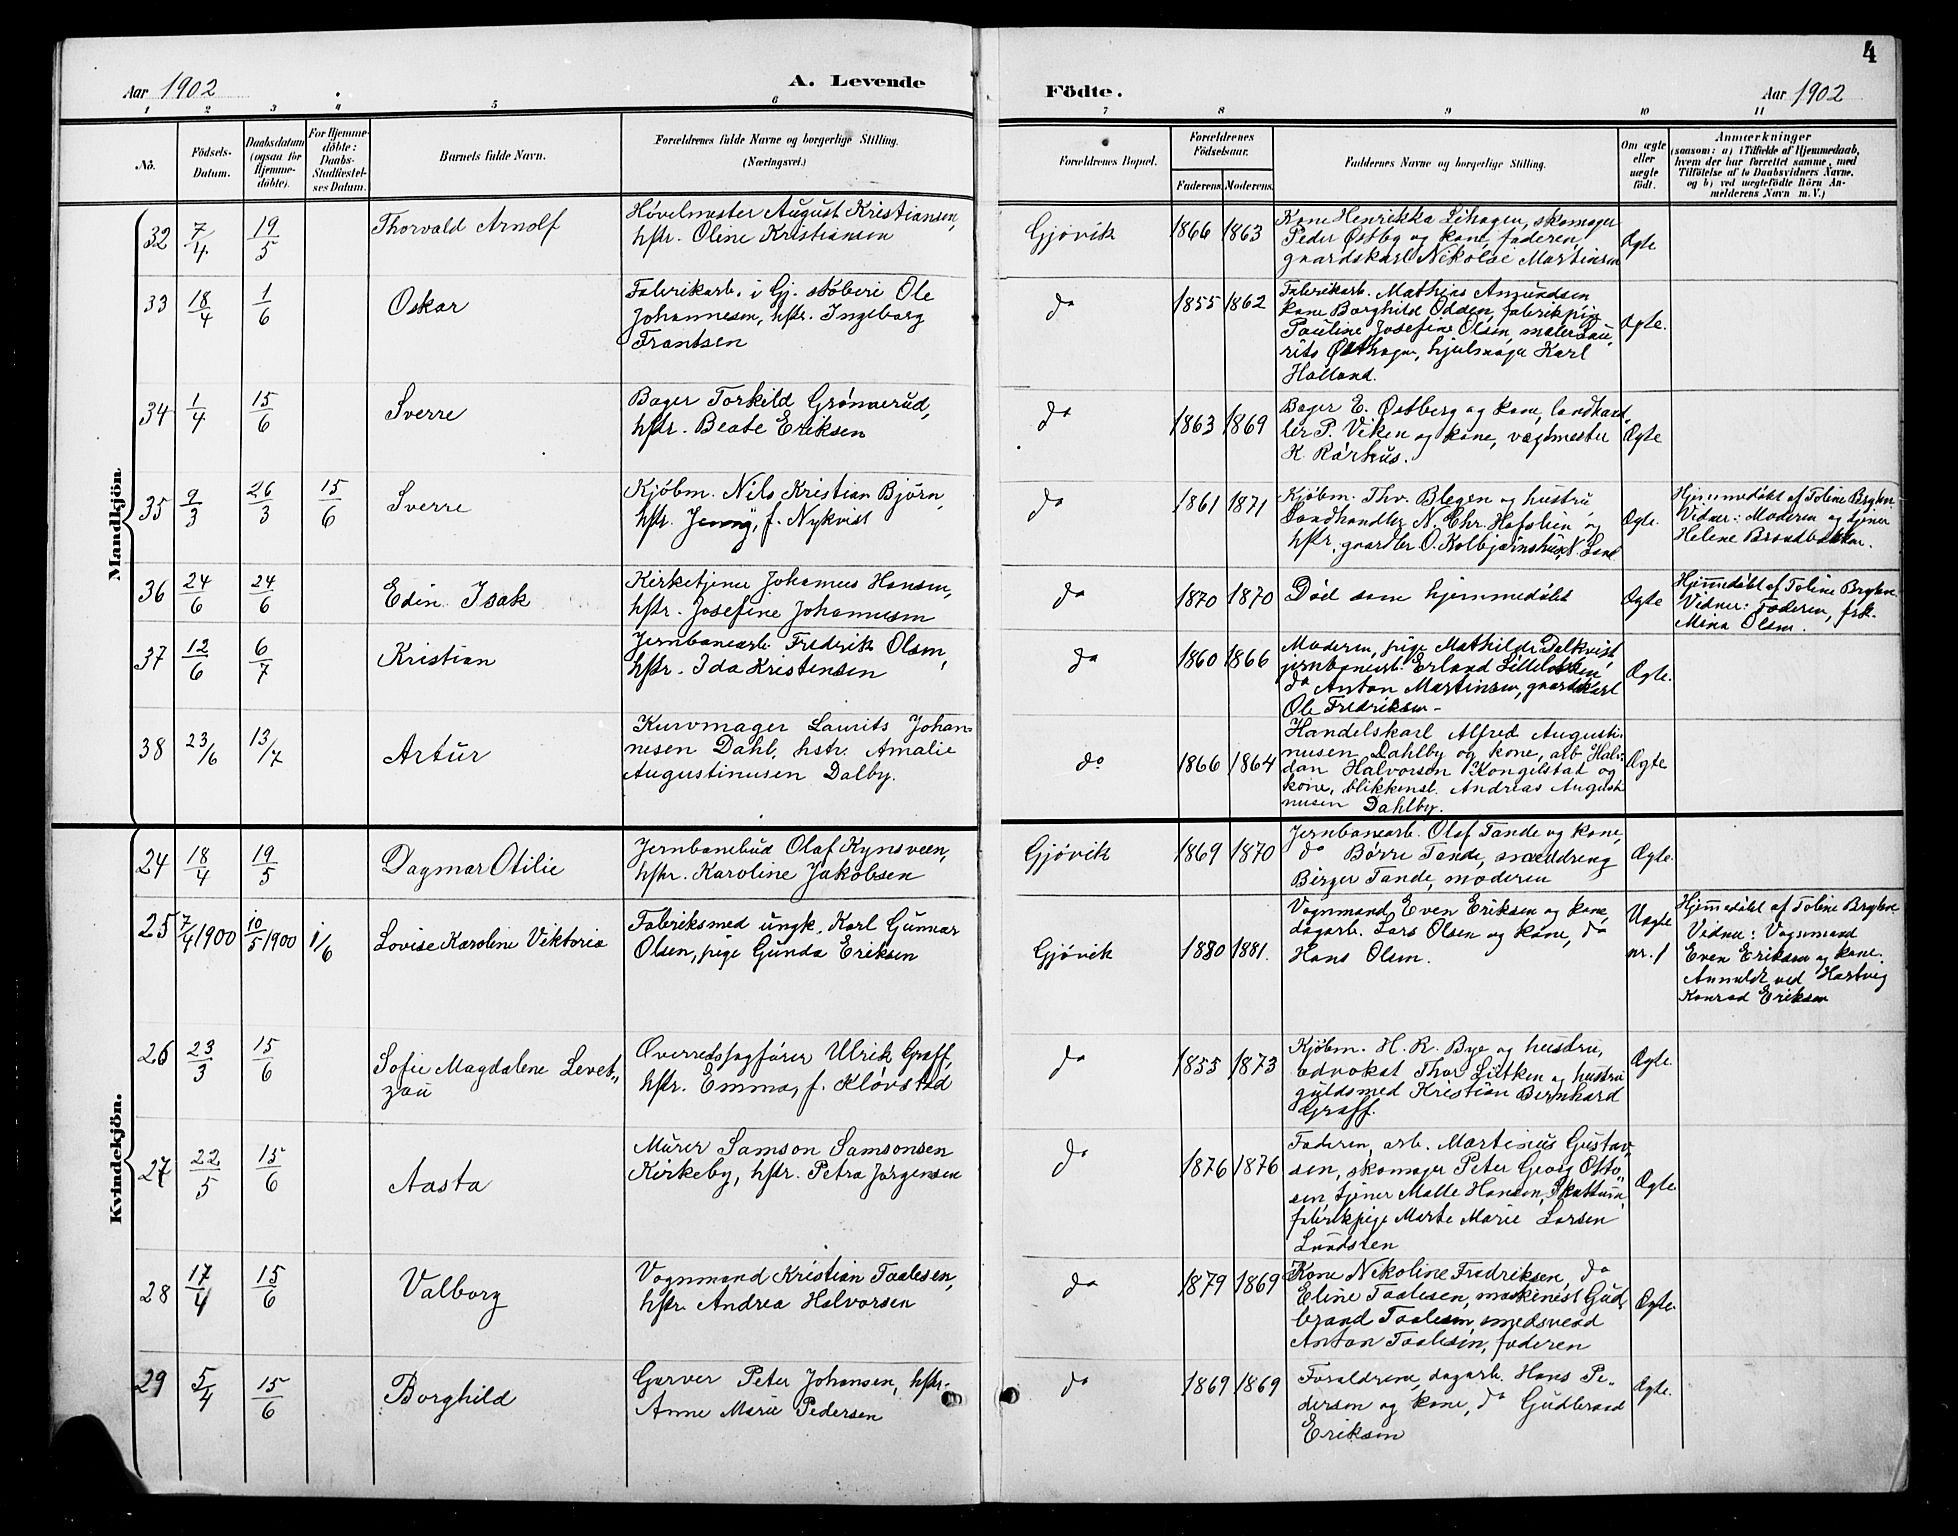 4
Aar 1902
A. Levende
Födte.
Aar 1902
1 2 3 4 5 6 7 8 9 10 11
No.
Födsels-
Datum.
Daabsdatum
(ogsaa for
Hjemme-
döbte).
For Hjemme-
döbte:
Daabs-
Stadfæstel-
ses Datum.
Barnets fulde Navn.
Forældrenes fulde Navne og borgerlige Stilling.
(Næringsvei.)
Forældrenes Bopæl.
Forældrenes
Födselsaar.
Faderens. Moderens.
Faddernes Navne og borgerlige Stilling.
Om ægte
eller
uægte
födt.
Anmærkninger
(saasom: a) i Tilfælde af Hjemmedaab,
hvem der har forrettet samme, med
Tilföielse af to Daabsvidners Navne,
og b) ved uægtefödte Börn An-
melderens Navn m. V.)
Mandkjön
32 7/4 19/5
Thorvald Arnolf
Høvelmester August Kristiansen,
hstr. Oline Kristiansen
Gjøvik
1866 1863
Kone Henrikka Lihagen, skomager
Peder Østby og kone, faderen,
gaardskarl Nikolai Martinsen
Ægte
33 18/4 1/6
Oskar
Fabrikarb. i Gj. støberi Ole
Johannesen, hstr. Ingeborg
Frantsen
do
1855 1862
Fabrikarb. Mathias Amundsen
kone Borghild Odden, fabrikpig
Pauline Josefine Olsen, maler Lau,
rits Østhagen, hjulmager Karl
Holland.
Ægte.
34 1/4 15/6
Sverre
Bager Torkild Grønnerud,
hstr. Beate Eriksen
do
1863 1869
Bager E. Østberg og kone, landhand
ler P. Viken og kone, vagtmester
K. Rørhus.
Ægte
35 9/3 26/3 15/6
Sverre
Kjøbm. Nils Kristian Bjørn,
hstr. Jenny, f. Nykvist
do
1861 1871
Kjøbm. Thv. Blegen og hustru
Landhandler N. Chr. Hofslien og
hstr, gaardbr O. Kolbjørnshus, N Lane
Ægte.
Hjemmedøbt af Toline Bryhn.
Vidner: Moderen og tjener
Helene Brandbakken.
36 24/6 24/6
Edin Isak
Kirketjener Johannes Hansen,
hstr. Josefine Johannesen
do
1870 1870
Død som hjemmedøbt
Ægte
Hjemmedøbt af Toline Bryhn
Vidner: Faderen, frk.
Mina Olsen.
37 12/6 6/7
Kristian
Jernbanearb Fredrik Olsen,
hstr. Ida Kristensen
do
1860 1866
Moderen, pige Mathilde Dalkvist
jernbanearb. Erland Lillelokken,
do Anton Martinsen, gaardskarl
Ole Fredriksen -
Ægte.
38 23/6 13/7
Artur
Kurvmager Laurits Johan-
nesen Dahl, hstr. Amalie
Augustinusen Dalby.
do
1866 1864
Handelskarl Alfred Augusti-
nusen Dahlby og kone, arb Halv-
dan Halvorsen Kongelstad og
kone, blikkensl. Andreas Augusti
nusen Dahlby.
Ægte
Kvindekjön.
24 18/4 19/5
Dagmar Otilie
Jernbanebud Olaf Kynsveen,
hstr. Karoline Jakobsen
Gjøvik
1869 1870
Jernbanearb. Olaf Tande og kone,
do Børre Tande, smeddreng
Birger Tande, moderen
Ægte.
25 7/4 1900 10/5 1900 1/6
Lovise Karoline Viktoria
Fabriksmed ungk. Karl Gunnar
Olsen, pige Gunda Eriksen
Gjøvik
1880 1881.
Vognmand Even Eriksen og kone,
dagarb. Lars Olsen og kone, do
Hans Olsen.
Uægte
nr. 1
Hjemmedøbt af Toline Bryhn
Vidner: Vognmand
Even Eriksen og kone.
Anmeldt ved Hartvig
Konrad Eriksen
26 23/3 15/6
Sofie Magdalene Levet-
zau
Overretssagfører Ulrik Graff,
hstr. Emma, f. Kløvstad
do
1855 1873
Kjøbm. H. R. Bye og hustru,
advokat Thor Lütken og hustru
guldsmed Kristian Bernhard
Graff.
Ægte.
27 22/5 15/6
Aasta
Murer Samson Samsonsen
Kirkeby, hstr. Petra Jørgensen
do
1876 1876
Faderen, arb. Martinus Gustav
sen, skomager Peter Georg Otto,
sen tjener Malle Hansen, Skattum,
fabrikpige Marte Marie Larsen
Lundsten
Ægte.
28 17/4 15/6
Valborg
Vognmand Kristian Taalesen,
hstr. Andrea Halvorsen
do
1879 1869
Kone Nikoline Fredriksen, do
Eline Taalesen, maskinist Gud
brand Taalesen, smedsvend
Anton Taalesen, faderen
Ægte.
29 5/4 15/6
Borghild
Garver Peter Johansen, hstr.
Anne Marie Pedersen
do
1869 1869
Foraldrene, dagarb. Hans Pe-
dersen og kone, do Gudbrand
Eriksen
Ægte.